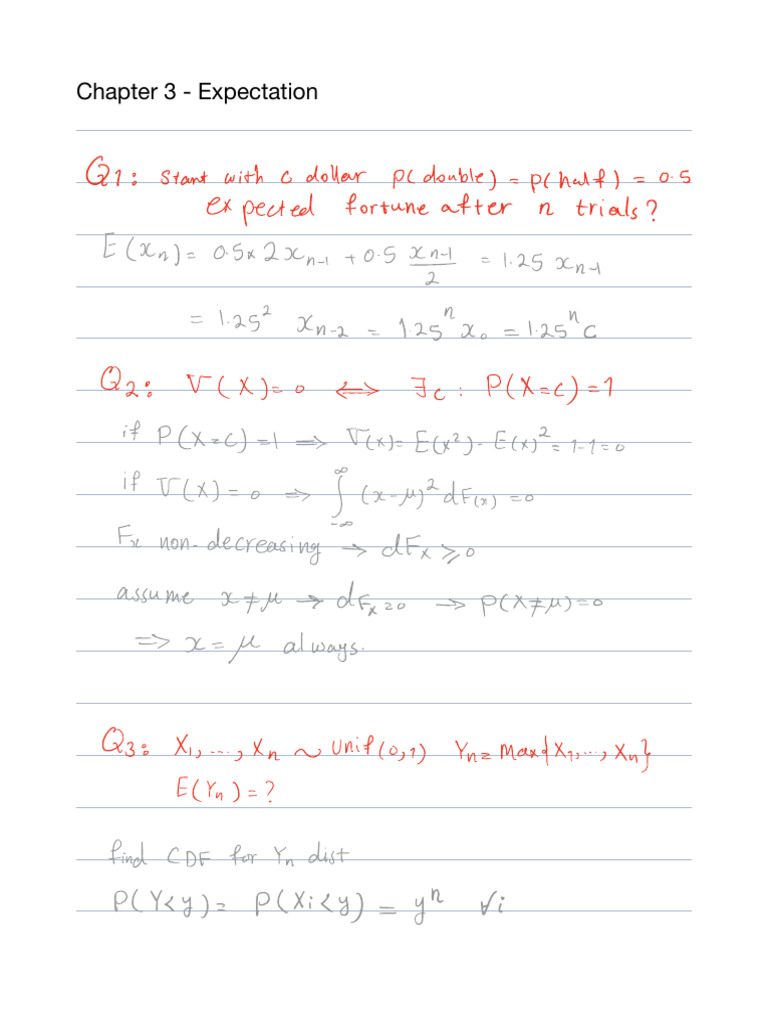 Chapter 3 - Expectation
Q1: Start with c dollar P(double) = P(half) = 0.5
expected fortune after n trials?
E(xₙ) = 0.5 × 2xₙ₋₁ + 0.5 xₙ₋₁/2 = 1.25 xₙ₋₁
= 1.25² xₙ₋₂ = 1.25ⁿ x₀ = 1.25ⁿ c
Q2: V(X) = 0 ⟺ ∃c : P(X=c) = 1
if P(X=c) = 1 ⟹ V(x) = E(x²) - E(x)² = 1-1 = 0
if V(X) = 0 ⟹ ∫_{-∞}^{∞} (x-μ)² dF(x) = 0
Fₓ non-decreasing → dFₓ ⩾ 0
assume x ≠ μ → dFₓ = 0 → P(X≠μ) = 0
⟹ x = μ always.
Q3: X₁, ..., Xₙ ~ Unif(0,1) Yₙ = Max{X₁, ..., Xₙ}
E(Yₙ) = ?
find CDF for Yₙ dist
P(Y<y) = P(Xi<y) = yⁿ ∀i